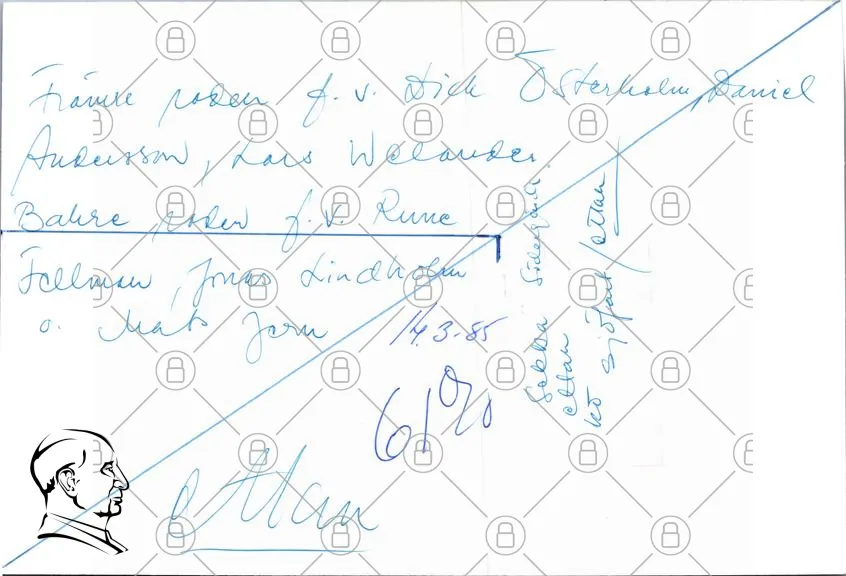 Främre raden f.v. Dick Österholm, Daniel
Andersson, Lars Welander.
Bakre raden f.v. Rune
Fellman, Jonas Lindholm
o. Mats Jern
14.3-85
61%
ettan
Sökka Södergårds
ettan
kö sjöfart/ettan